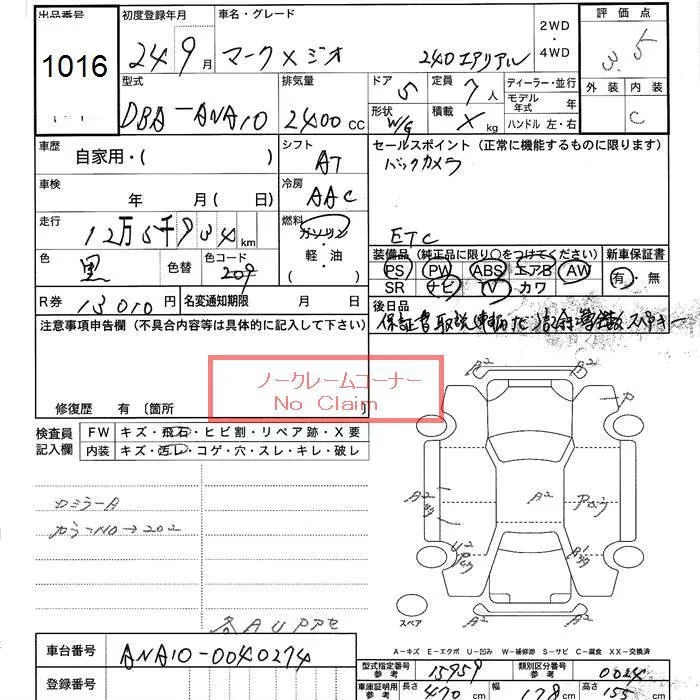 出品番号 初度登録年月 車名・グレード 2WD・4WD 評価点
1016 24 9月 マークXジオ 240エアリアル 3.5
型式 排気量 ドア 5 定員 7人 ディーラー・並行 外装 内装
DBA-ANA10 2400cc 形状 W/G 積載 X kg モデル年式 年 C
ハンドル 左・右
車歴 自家用・( ) シフト AT セールスポイント (正常に機能するものに限ります)
バックカメラ
車検 年 月( 日) 冷房 AAC
走行 12万5千934km 燃料 ガソリン・軽油・( ) ETC
色 黒 色替 色コード 209 装備品 (純正品に限り○をつけてください) 新車保証書
PS PW ABS エアB AW 有・無
SR ナビ TV カワ
R券 13010円 名変通知期限 月 日 後日品
注意事項申告欄 (不具合内容等は具体的に記入して下さい) 保証書 取説
ノークレームコーナー
No Claim
修復歴 有 〔箇所 〕
検査員記入欄 FW キズ・飛石・ヒビ割・リペア跡・X要
内装 キズ・汚レ・コゲ・穴・スレ・キレ・破レ
A2 A2
P
A2 A2
U2 A1
カラーNO→202
各AUPPセ
スペア
A-キズ E-エクボ U-凹み W-補修跡 S-サビ C-腐食 XX-交換済
車台番号 ANA10-0040274 型式指定番号 参考 15959 類別区分番号 参考 0024
登録番号 車庫証明用 参考 長さ 470cm 幅 178cm 高さ 155cm